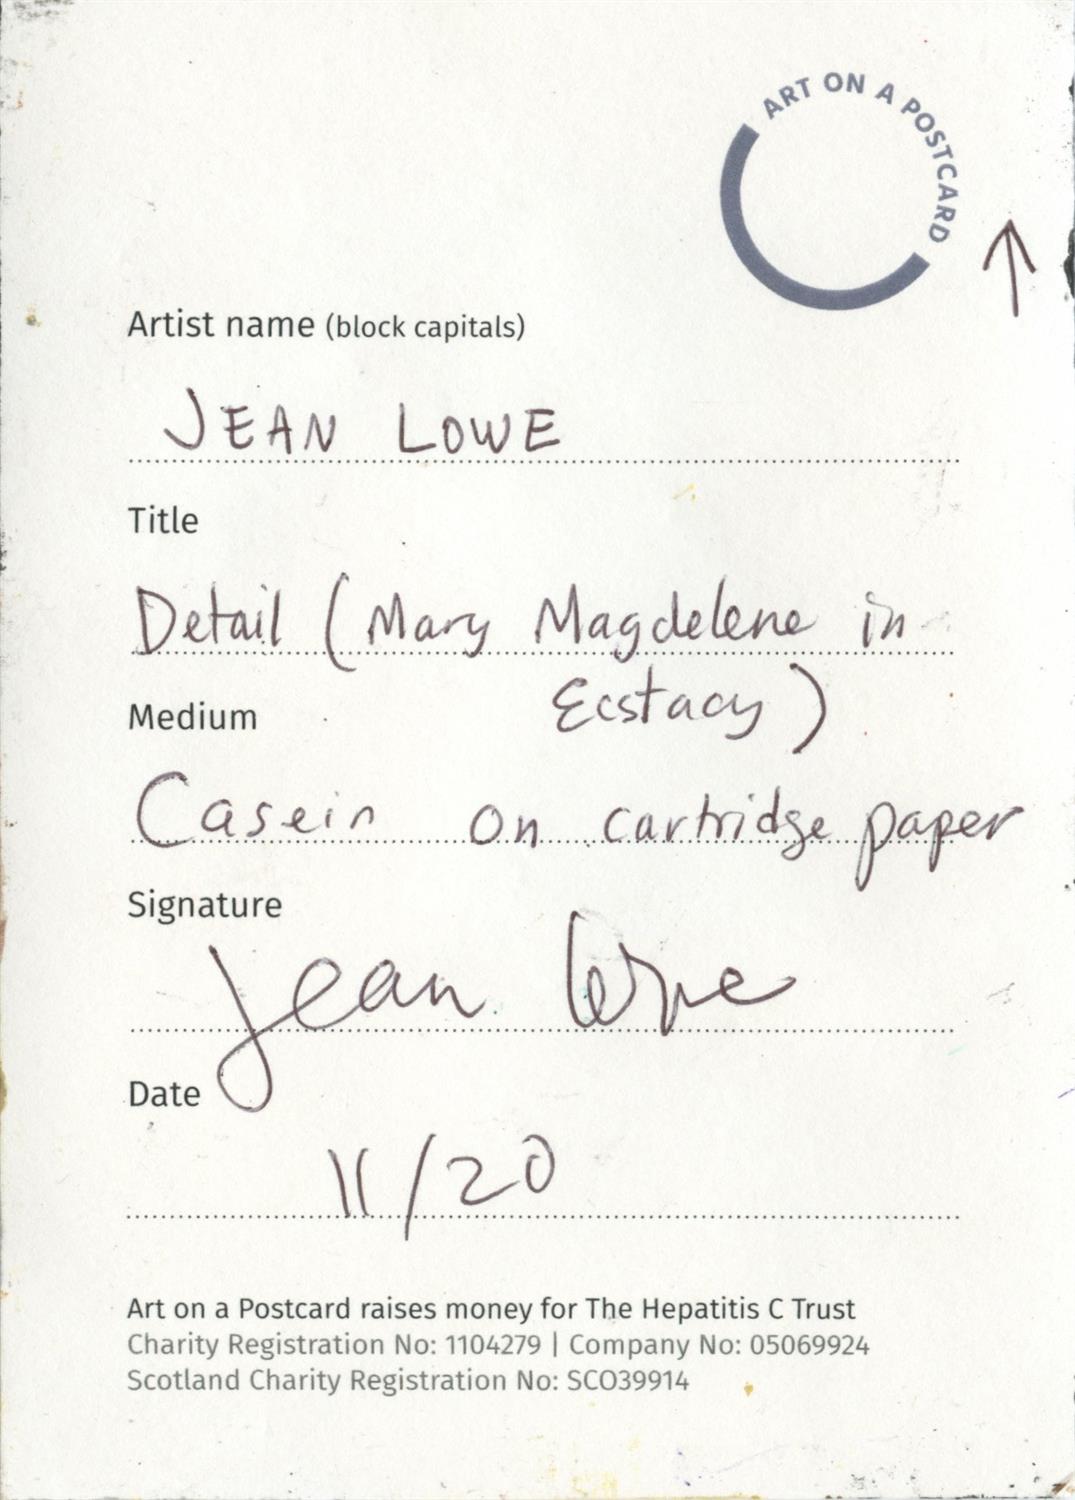 ART ON A POSTCARD
Artist name (block capitals)
JEAN LOWE
Title
Detail (Mary Magdelene in
Ecstacy)
Medium
Casein on cartridge paper
Signature
Jean Lowe
Date
11/20
Art on a Postcard raises money for The Hepatitis C Trust
Charity Registration No: 1104279 | Company No: 05069924
Scotland Charity Registration No: SCO39914